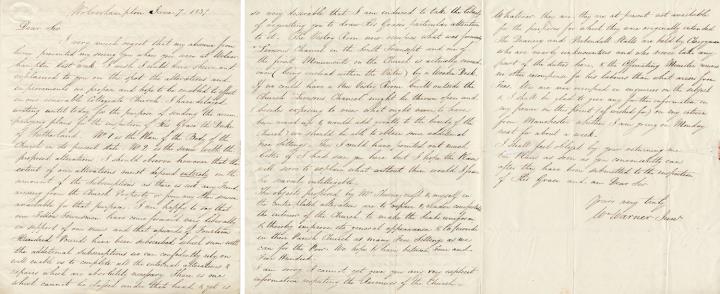 Wolverhampton June 7. 1837.
Dear Sir
I very much regret that my absence from
home prevented my seeing you when you were at Wolver
hampton last week. I wish I could have shewn and
explained to you on the spot the alterations and
improvements we propose and hope to be enabled to effect
in our venerable Collegiate Church. I have delayed
writing until today for the purpose of sending the accom
panying plans for the inspection of His Grace the Duke
of Sutherland. No 1 is the Plan of the Body of the
Church in its present state No 2 is the same with the
proposed alterations. I should observe however that the
extent of our alterations must depend entirely on the
amount of the Subscriptions as there is not any Fund
arising from the Church Property or from any other source
available for that purpose. I am happy to say that
our Fellow Townsmen have come forward very liberally
in support of our views and that upwards of Fourteen
Hundred Pounds have been subscribed which sum with
the additional Subscriptions we can confidently rely on
will enable us to complete all the internal alterations &
repairs which are absolutely necessary. There is one
which cannot be classed under that head & yet is
so very desirable that I am induced to take the liberty
of requesting you to draw His Graces particular attention
to it. The Vestry Room now occupies what was formerly
Levesons Chancel in the South Transept and one of
the finest Monuments in the Church is actually
(being enclosed within the Vestry) by a Wooden Desk.
If we could have a New Vestry Room built outside the
Church Levesons Chancel might be thrown open and
besides exposing to view what ought never to have
been shut up it would add greatly to the beauty of the
church & we should be able to obtain some additional
Free Sittings. This I could have pointed out much
better if I had seen you here but I hope the Plans
will serve to explain what without them would I fear
be scarcely intelligible.
The objects proposed by Mr & myself in
the contemplated alterations are to repair & cleanse completely
the interior of the Church to make the Seats uniform
& thereby improve the general appearance & to provide
in their Parish Church as many Free Sittings as we
can for the Poor. We hope to have between Four and
Five Hundred.
I am sorry I cannot yet give you any very explicit
information respecting the Revenues of the Church.
Whatever they are they are at present not available
for the purposes for which they are originally intended
the Deanery and Prebendal Stalls are held by Clergymen
who are merely and who never take any
part of the duties here, & the Officiating Minister receives
no other recompense for his labours than what arises from
Fees. We are now occupied in enquiries on the subject
& I shall be glad to give any further information in
my power on the subject (if wished for) on my return
from Manchester whither I am going on Monday
next for about a week.
I shall feel obliged by your returning me
the Plans as soon as you conveniently can
after they have been submitted to the inspection
of His Grace and am Dear Sir
Yours very truly
Wm Warner Junr